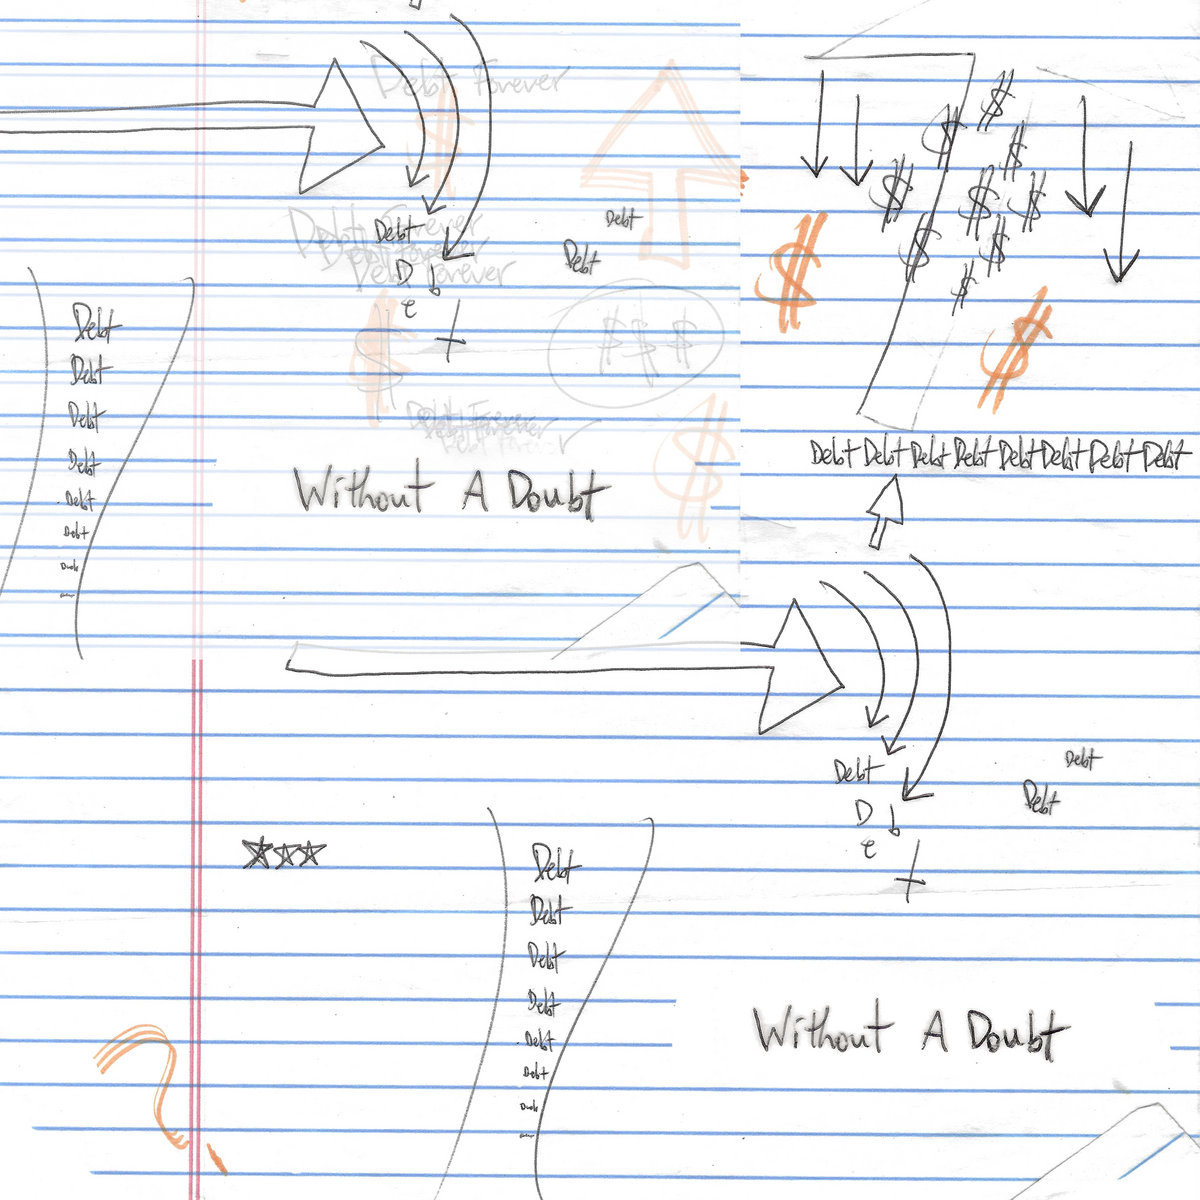 Debt Forever
$
$
$
$
$
$
$
$
$
$
$
$
Debt Forever
Debt Forever
Debt Forever
Debt
Debt
Debt
Debt
$ $ $
$
$
Debt
Debt
Debt
Debt
Debt
Debt
Debt Forever
Debt Forever
$
Debt Debt Debt Debt Debt Debt Debt Debt
Without A Doubt
Debt
Debt
Debt
Debt
Debt
Debt
Debt
Debt
Debt
Debt
Without A Doubt